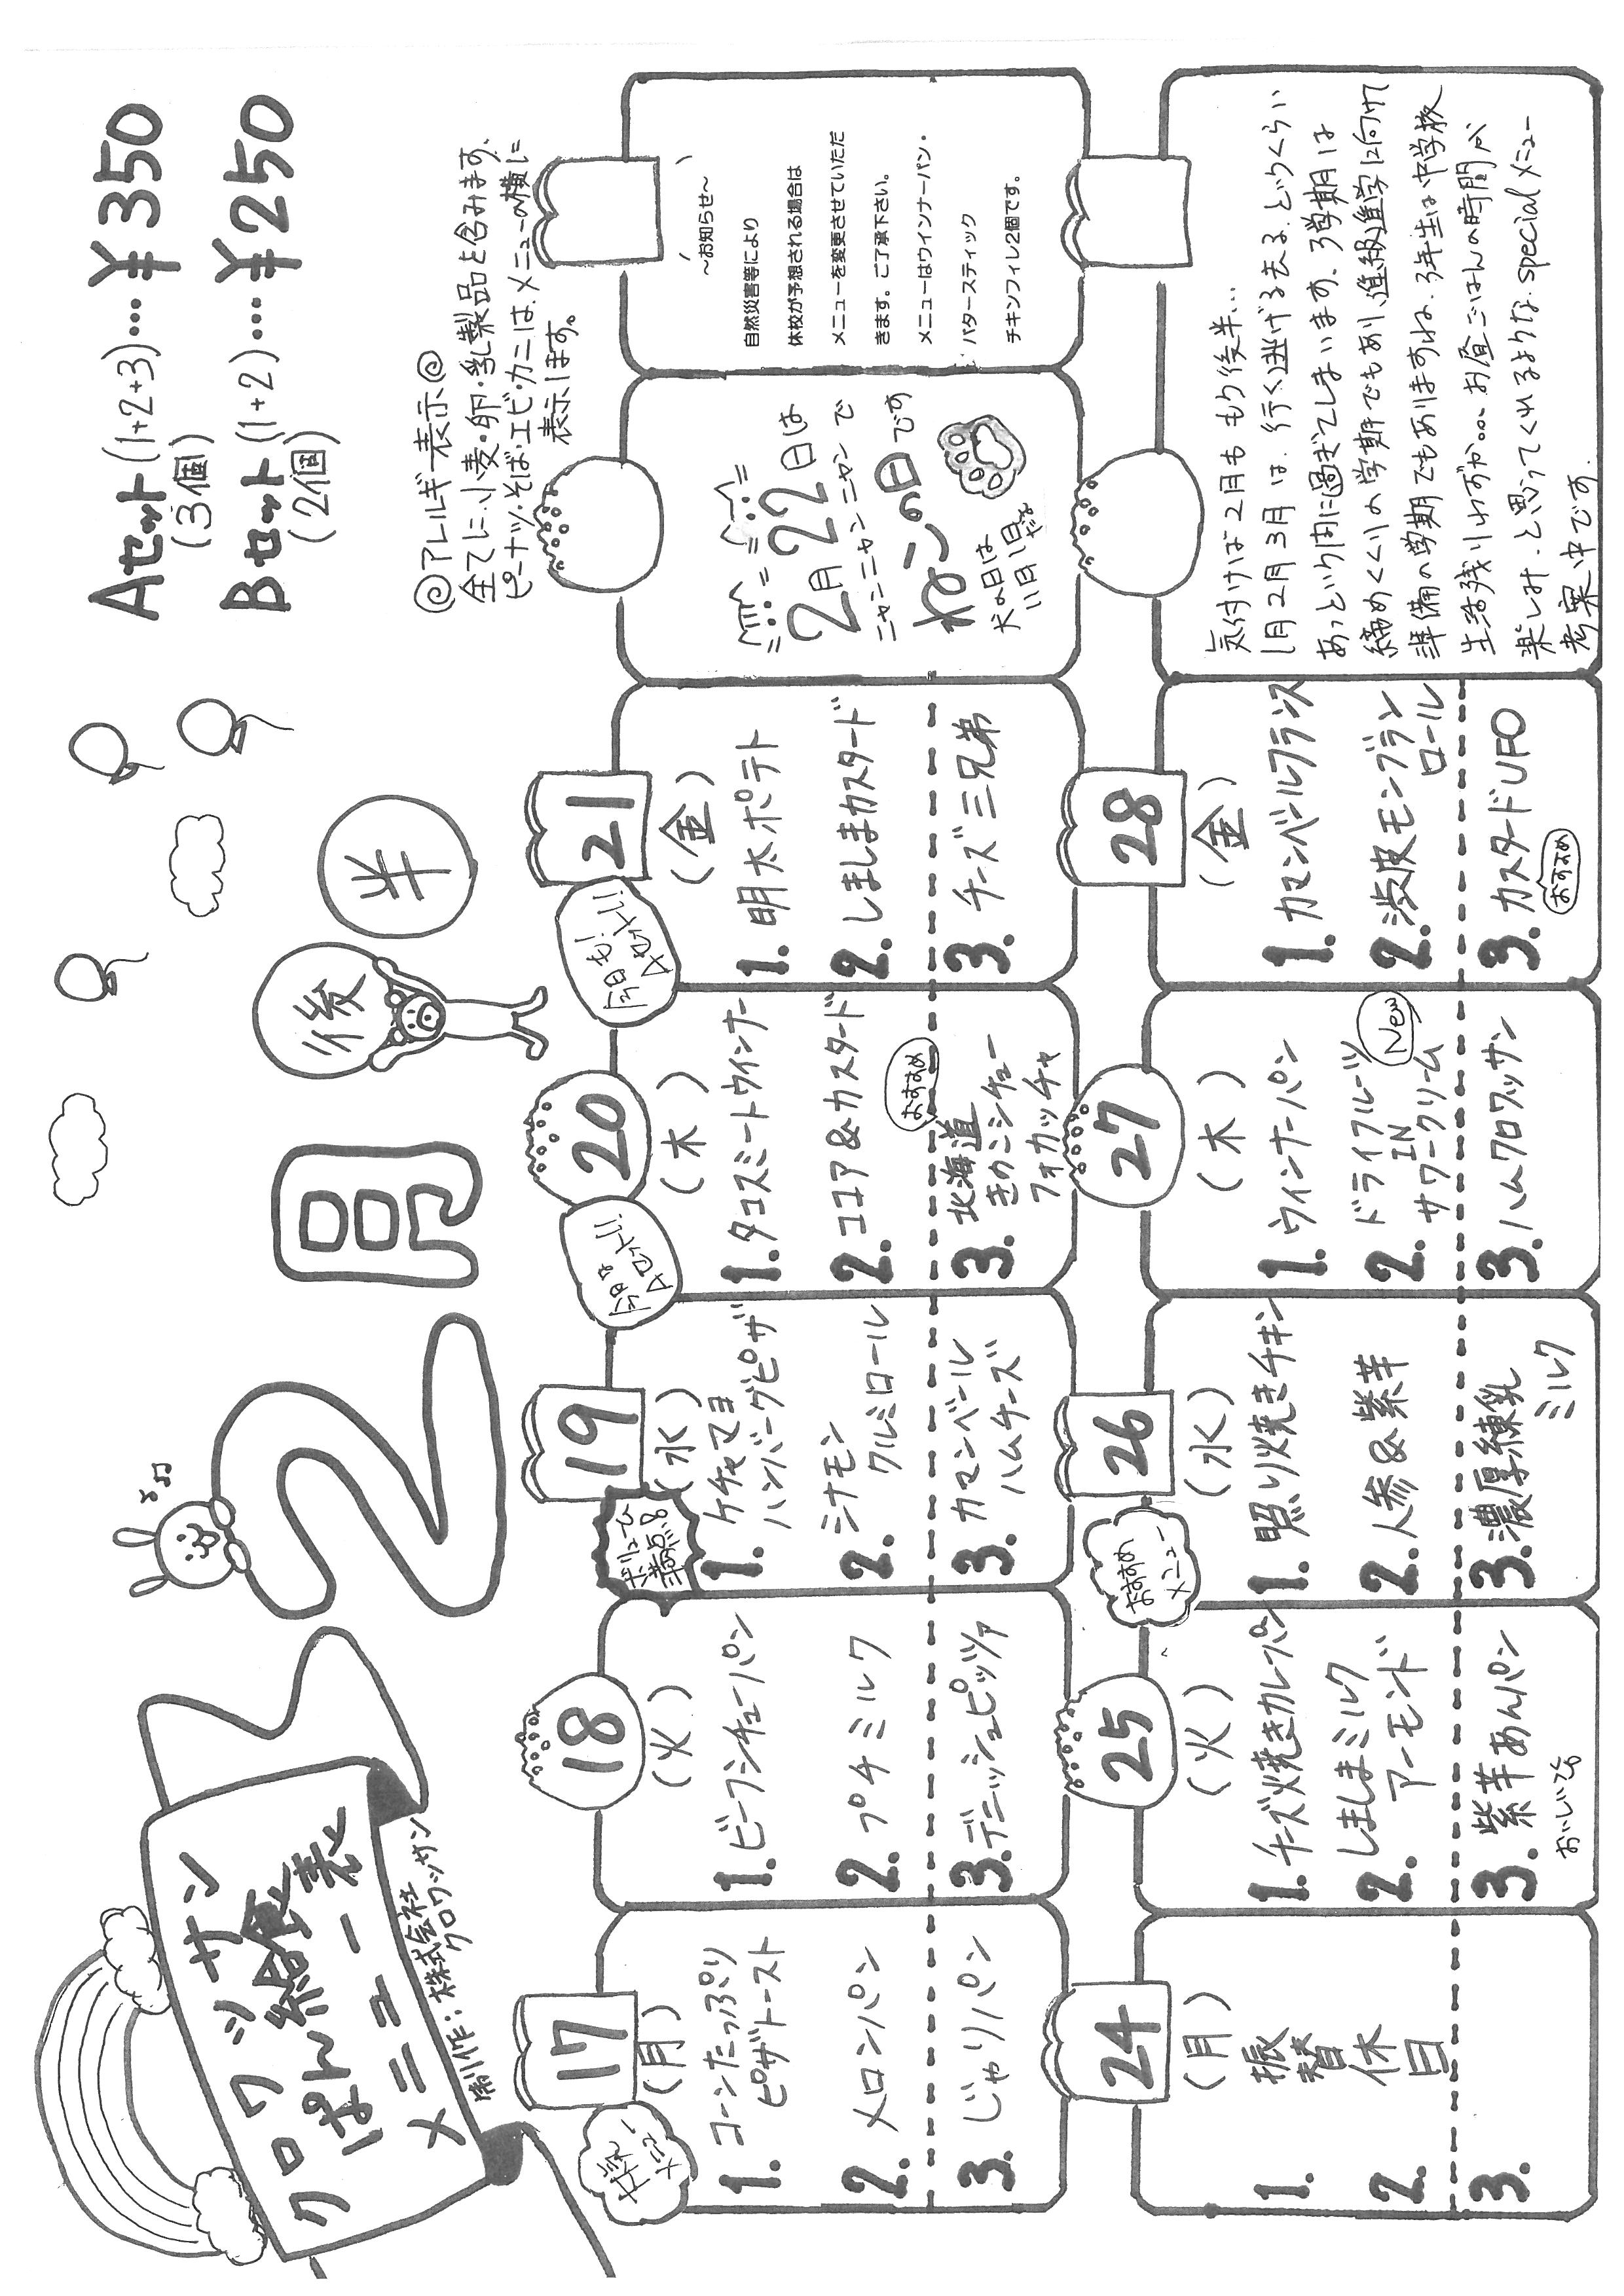 クロワッサン
ぱん給食
メニュー表
制作：株式会社
クロワッサン
2月
後半
Aセット(1+2+3)…¥350
(3個)
Bセット(1+2)…¥250
(2個)
◎アレルギー表示◎
全てに、小麦・卵・乳製品を含みます。
ピーナッツ・そば・エビ・カニは、メニューの横に
表示します。
人気
メニュー
17
(月)
1. コーンたっぷり
ピザトースト
2. メロンパン
3. じゃりパン
18
(火)
1. ビーフシチューパン
2. プチミルク
3. デニッシュピッツァ
ボリューム
満点!
19
(水)
1. ケチャマヨ
ハンバーグピザ
2. シナモン
クルミロール
3. カマンベール
ハムチーズ
今日は
Aセット!!
20
(木)
1. タコスミートウィンナー
2. ココア&カスタード
おすすめ
3. 北海道
きのこシチュー
フォカッチャ
今日も!
Aセット!!
21
(金)
1. 明太ポテト
2. しましまカスタード
3. チーズ三兄弟
2月22日は
ニャンニャンニャンで
ねこの日です
犬の日は
いい日
～お知らせ～
自然災害等により
休校が予想される場合は
メニューを変更させていただ
きます。ご了承下さい。
メニューはウインナーパン・
バタースティック
チキンフィレ2個です。
24
(月)
振替休日
1.
2.
3.
25
(火)
1. チーズ焼きカレーパン
2. しましまミルク
アーモンド
3. 紫芋あんパン
おいしいよ
おすすめ
メニュー
26
(水)
1. 照り焼きチキン
2. 人参&紫芋
3. 濃厚練乳
ミルク
27
(木)
1. ウィンナーパン
2. ドライフルーツ
IN
サワークリーム
New
3. ハムクロワッサン
28
(金)
1. カマンベールフランス
2. 渋皮モンブラン
ロール
3. カスタードUFO
おすすめ
気付けば2月ももう後半…
1月2月3月は、行く逃げる去る、というくらい
あっという内に過ぎてしまいます。3学期は
締めくくりの学期でもあり、進級進学に向けて
準備の学期でもありますね。3年生は中学校
生活残りわずか… お昼ごはんの時間が
楽しみ、と思ってくれるような specialメニュー
考案中です。